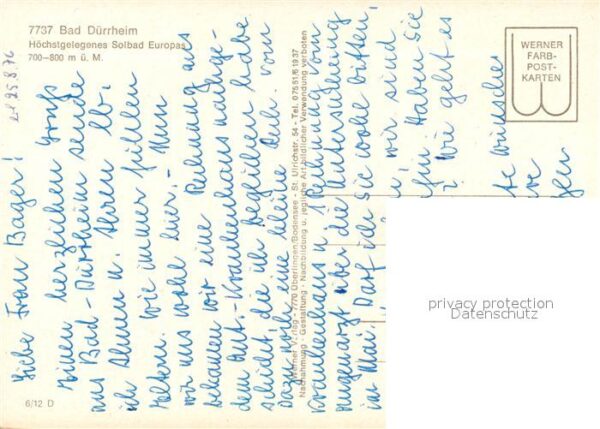 7737 Bad Dürrheim
Höchstgelegenes Solbad Europas
700–800 m ü. M.
WERNER
FARB-
POST-
KARTEN
Werner Verlag - 7770 Überlingen/Bodensee - St. Ulrichstr. 54 - Tel. 07551/61937
Nachahmung - Gestaltung - Nachbildung u. jegliche Art bildlicher Verwendung verboten
6/12 D
25.8.76
Liebe Frau Bager!
Einen herzlichen Gruß
aus Bad-Dürrheim sende
ich Ihnen u. Ihren lb.
Eltern. Wie immer fühlen
wir uns wohl hier. - Nun
bekamen wir eine Rechnung aus
dem Krankenhaus nachge-
schickt, die ich beglichen habe
Dazwischen eine kleine Rech. vom
Krankenhaus u. Rechnung vom
Augenarzt über die Untersuchung
im Mai. Darf ich Sie wohl bitten,
wir sind
Haben Sie
Wie geht es
Wünsche
privacy protection
Datenschutz